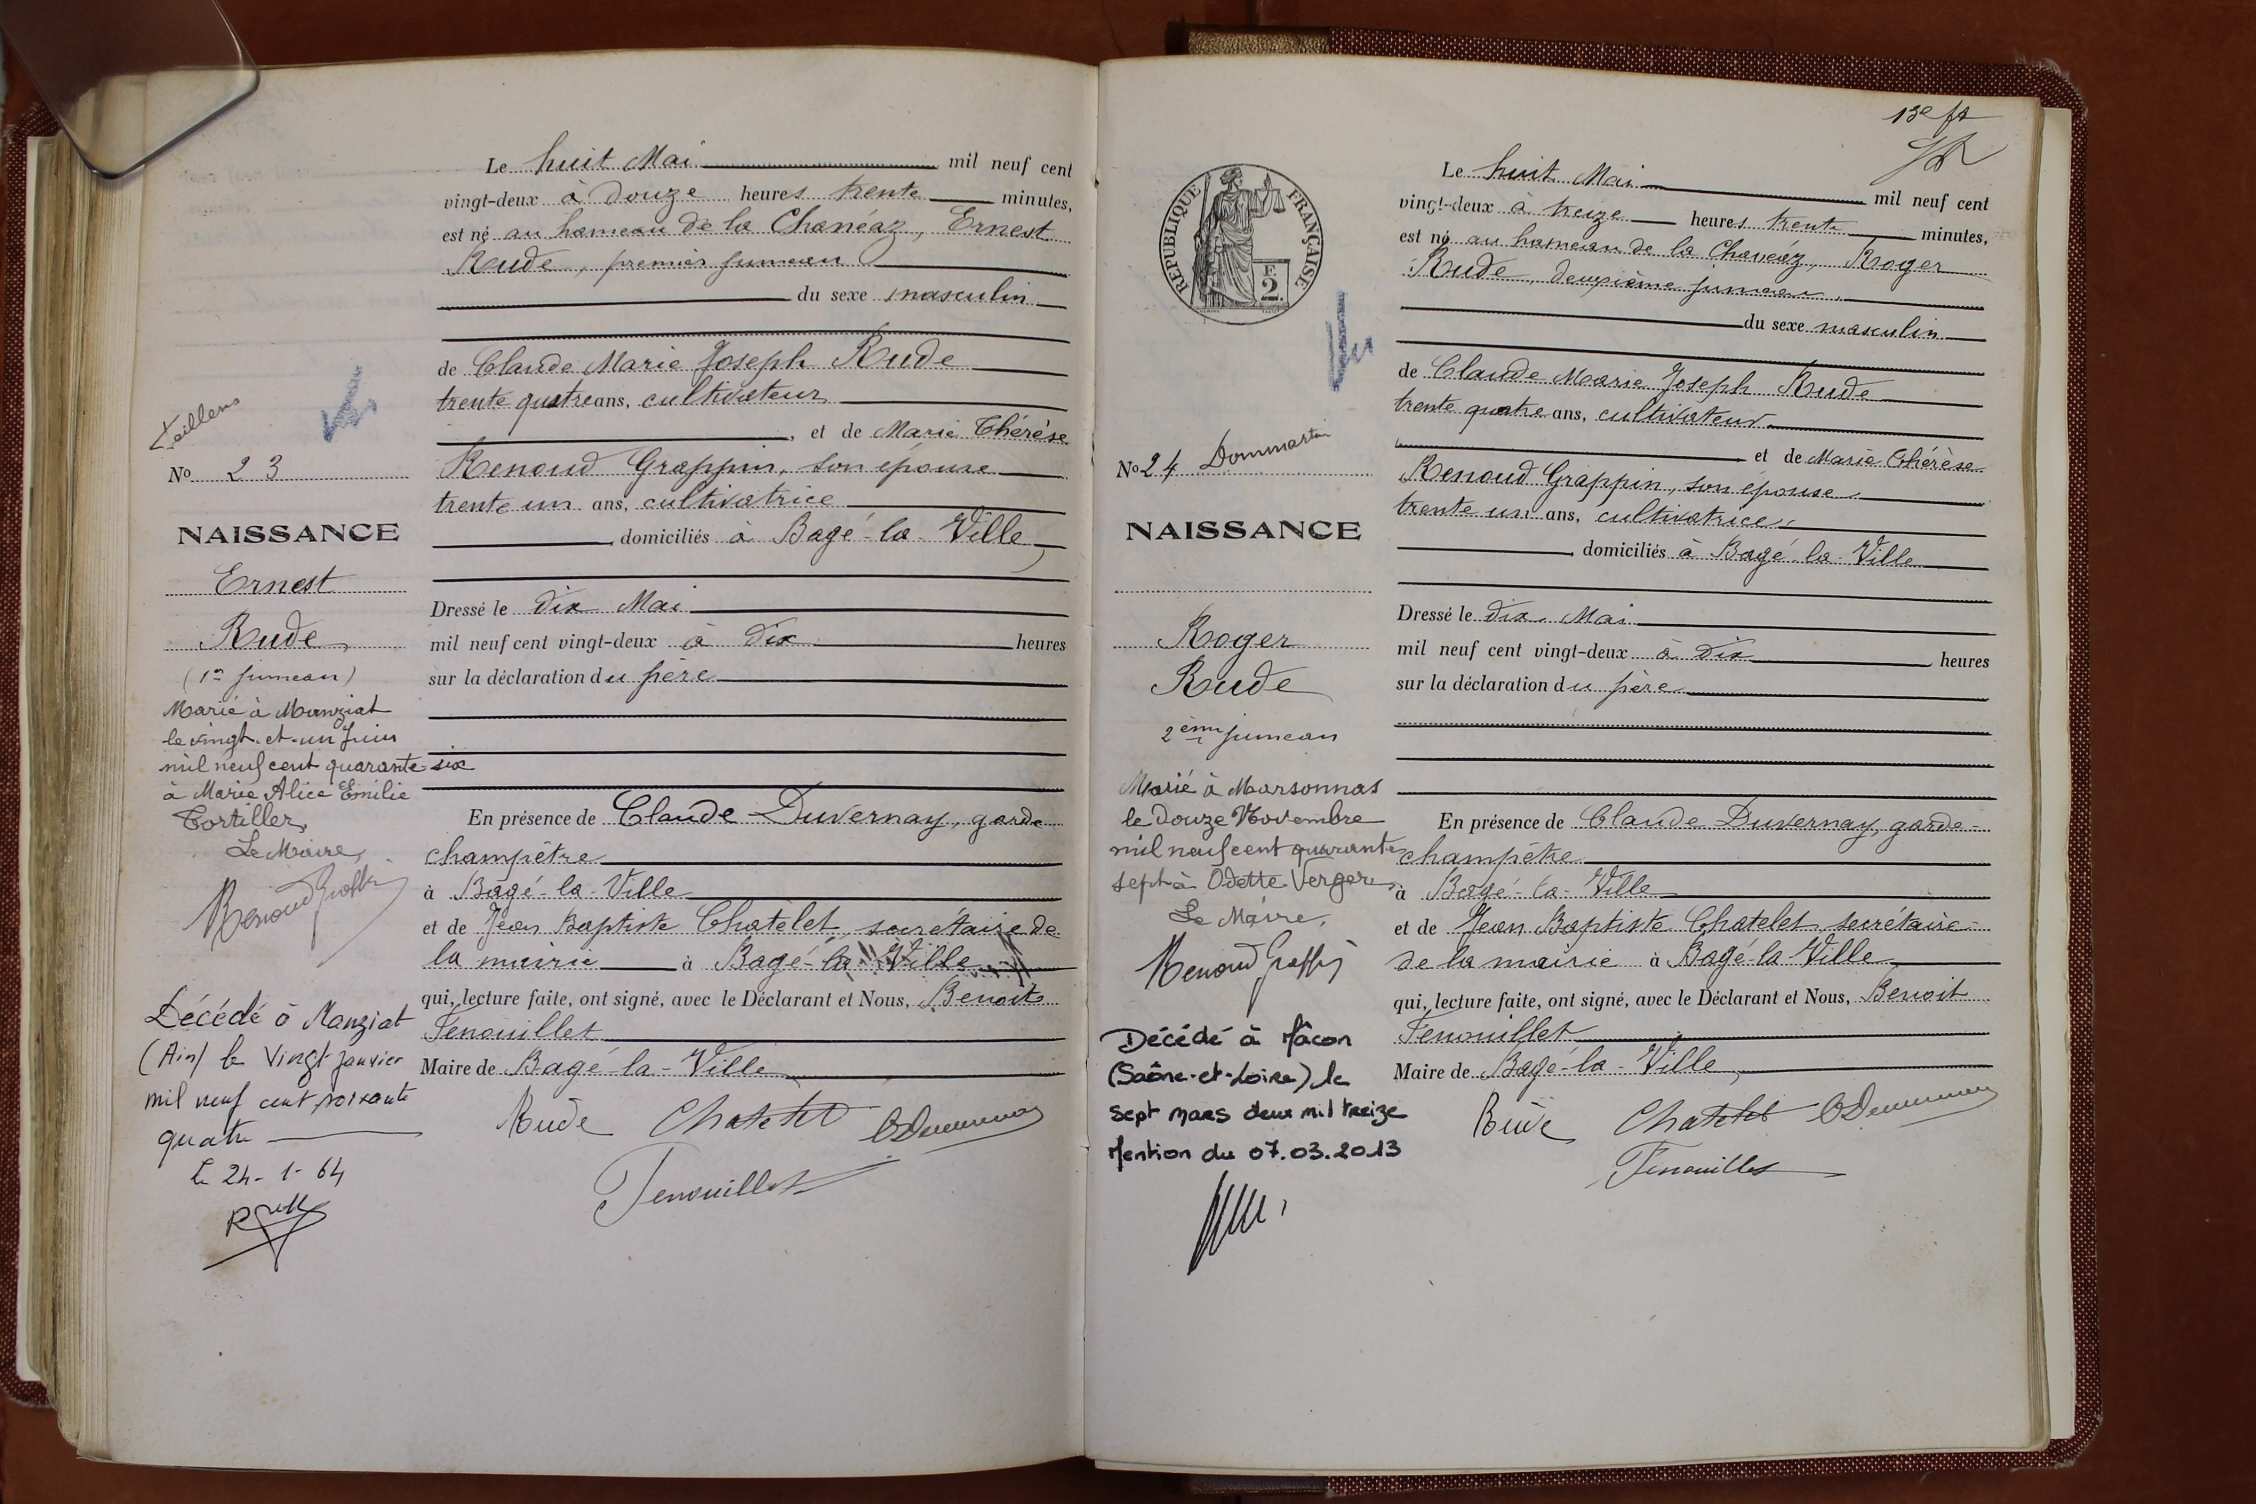 Le huit Mai mil neuf cent
vingt-deux à douze heures trente minutes,
est né au hameau de la Chanéaz, Ernest
Rude, premier jumeau
du sexe masculin
de Claude Marie Joseph Rude
trente quatre ans, cultivateur
, et de Marie Thérèse
Renoud Grappin, son épouse
trente un ans, cultivatrice
, domiciliés à Bagé-la-Ville,
Dressé le dix Mai
mil neuf cent vingt-deux à dix heures
sur la déclaration du père
En présence de Claude Duvernay, garde
champêtre
à Bagé-la-Ville
et de Jean Baptiste Chatelet, secrétaire de
la mairie à Bagé-la-Ville
qui, lecture faite, ont signé, avec le Déclarant et Nous, Benoit
Fenouillet
Maire de Bagé-la-Ville
Rude Chatelet
Fenouillet
No 23
NAISSANCE
Ernest
Rude
(1er jumeau)
Marié à Manziat
le vingt-et-un Juin
mil neuf cent quarante-six
à Marie Alice Emilie
Tortiller,
Le Maire,
Renoud Grappin
Décédé à Manziat
(Ain) le vingt janvier
mil neuf cent soixante
quatre
Le 24-1-64
13e ft
RÉPUBLIQUE FRANÇAISE
F.
2.
Le huit Mai mil neuf cent
vingt-deux à treize heures trente minutes,
est né au hameau de la Chanéaz, Roger
Rude, deuxième jumeau,
du sexe masculin
de Claude Marie Joseph Rude
trente quatre ans, cultivateur
et de Marie Thérèse
Renoud Grappin, son épouse
trente un ans, cultivatrice,
, domiciliés à Bagé-la-Ville
Dressé le dix Mai
mil neuf cent vingt-deux à dix heures
sur la déclaration du père
En présence de Claude Duvernay, garde-
champêtre
à Bagé-la-Ville
et de Jean Baptiste Chatelet, secrétaire
de la mairie à Bagé-la-Ville
qui, lecture faite, ont signé, avec le Déclarant et Nous, Benoit
Fenouillet
Maire de Bagé-la-Ville,
Rude Chatelet
Fenouillet
No 24 Dommartin
NAISSANCE
Roger
Rude
2ème jumeau
Marié à Marsonnas
le douze Novembre
mil neuf cent quarante
sept à Odette Verger,
Le Maire,
Renoud Grappin
Décédé à Mâcon
(Saône-et-Loire) le
sept mars deux mil treize
Mention du 07.03.2013